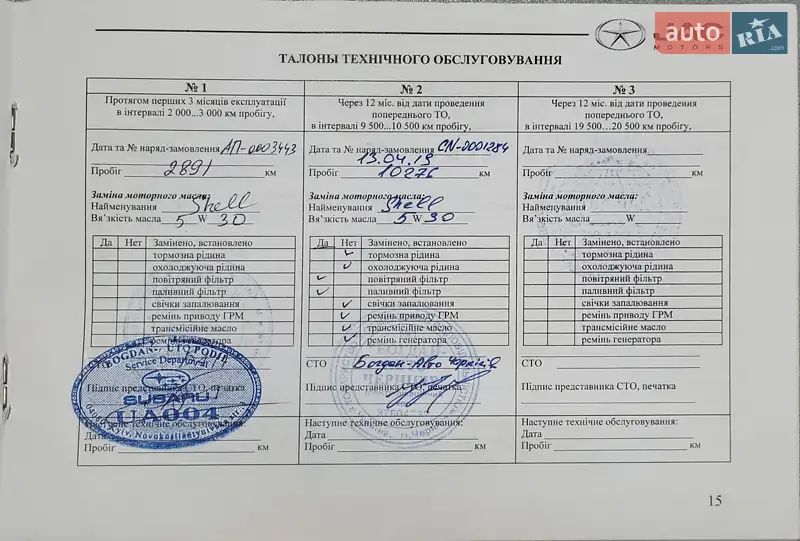 JAC
MOTORS
auto RIA .com
ТАЛОНЫ ТЕХНІЧНОГО ОБСЛУГОВУВАННЯ
№ 1
Протягом перших 3 місяців експлуатації
в інтервалі 2 000...3 000 км пробігу,
Дата та № наряд-замовлення АП-0003443
Пробіг 2891 км
Заміна моторного масла:
Найменування Shell
В'язкість масла 5 W 30
Да Нет Замінено, встановлено
тормозна рідина
охолоджуюча рідина
повітряний фільтр
паливний фільтр
свічки запалювання
ремінь приводу ГРМ
трансмісійне масло
ремінь генератора
BOGDAN-
Service Department
Підпис представника СТО, печатка
SUBARU
UA004
Наступне технічне обслуговування:
Дата
Пробіг км
№ 2
Через 12 міс. від дати проведення
попереднього ТО,
в інтервалі 9 500...10 500 км пробігу,
Дата та № наряд-замовлення CN-0001284
13.04.19
Пробіг 10276 км
Заміна моторного масла:
Найменування Shell
В'язкість масла 5 W 30
Да Нет Замінено, встановлено
тормозна рідина
охолоджуюча рідина
повітряний фільтр
паливний фільтр
свічки запалювання
ремінь приводу ГРМ
трансмісійне масло
ремінь генератора
СТО Богдан-Авто Чернігів
Підпис представника СТО, печатка
Наступне технічне обслуговування:
Дата
Пробіг км
№ 3
Через 12 міс. від дати проведення
попереднього ТО,
в інтервалі 19 500...20 500 км пробігу,
Дата та № наряд-замовлення
Пробіг км
Заміна моторного масла:
Найменування
В'язкість масла W
Да Нет Замінено, встановлено
тормозна рідина
охолоджуюча рідина
повітряний фільтр
паливний фільтр
свічки запалювання
ремінь приводу ГРМ
трансмісійне масло
ремінь генератора
СТО
Підпис представника СТО, печатка
Наступне технічне обслуговування:
Дата
Пробіг км
15